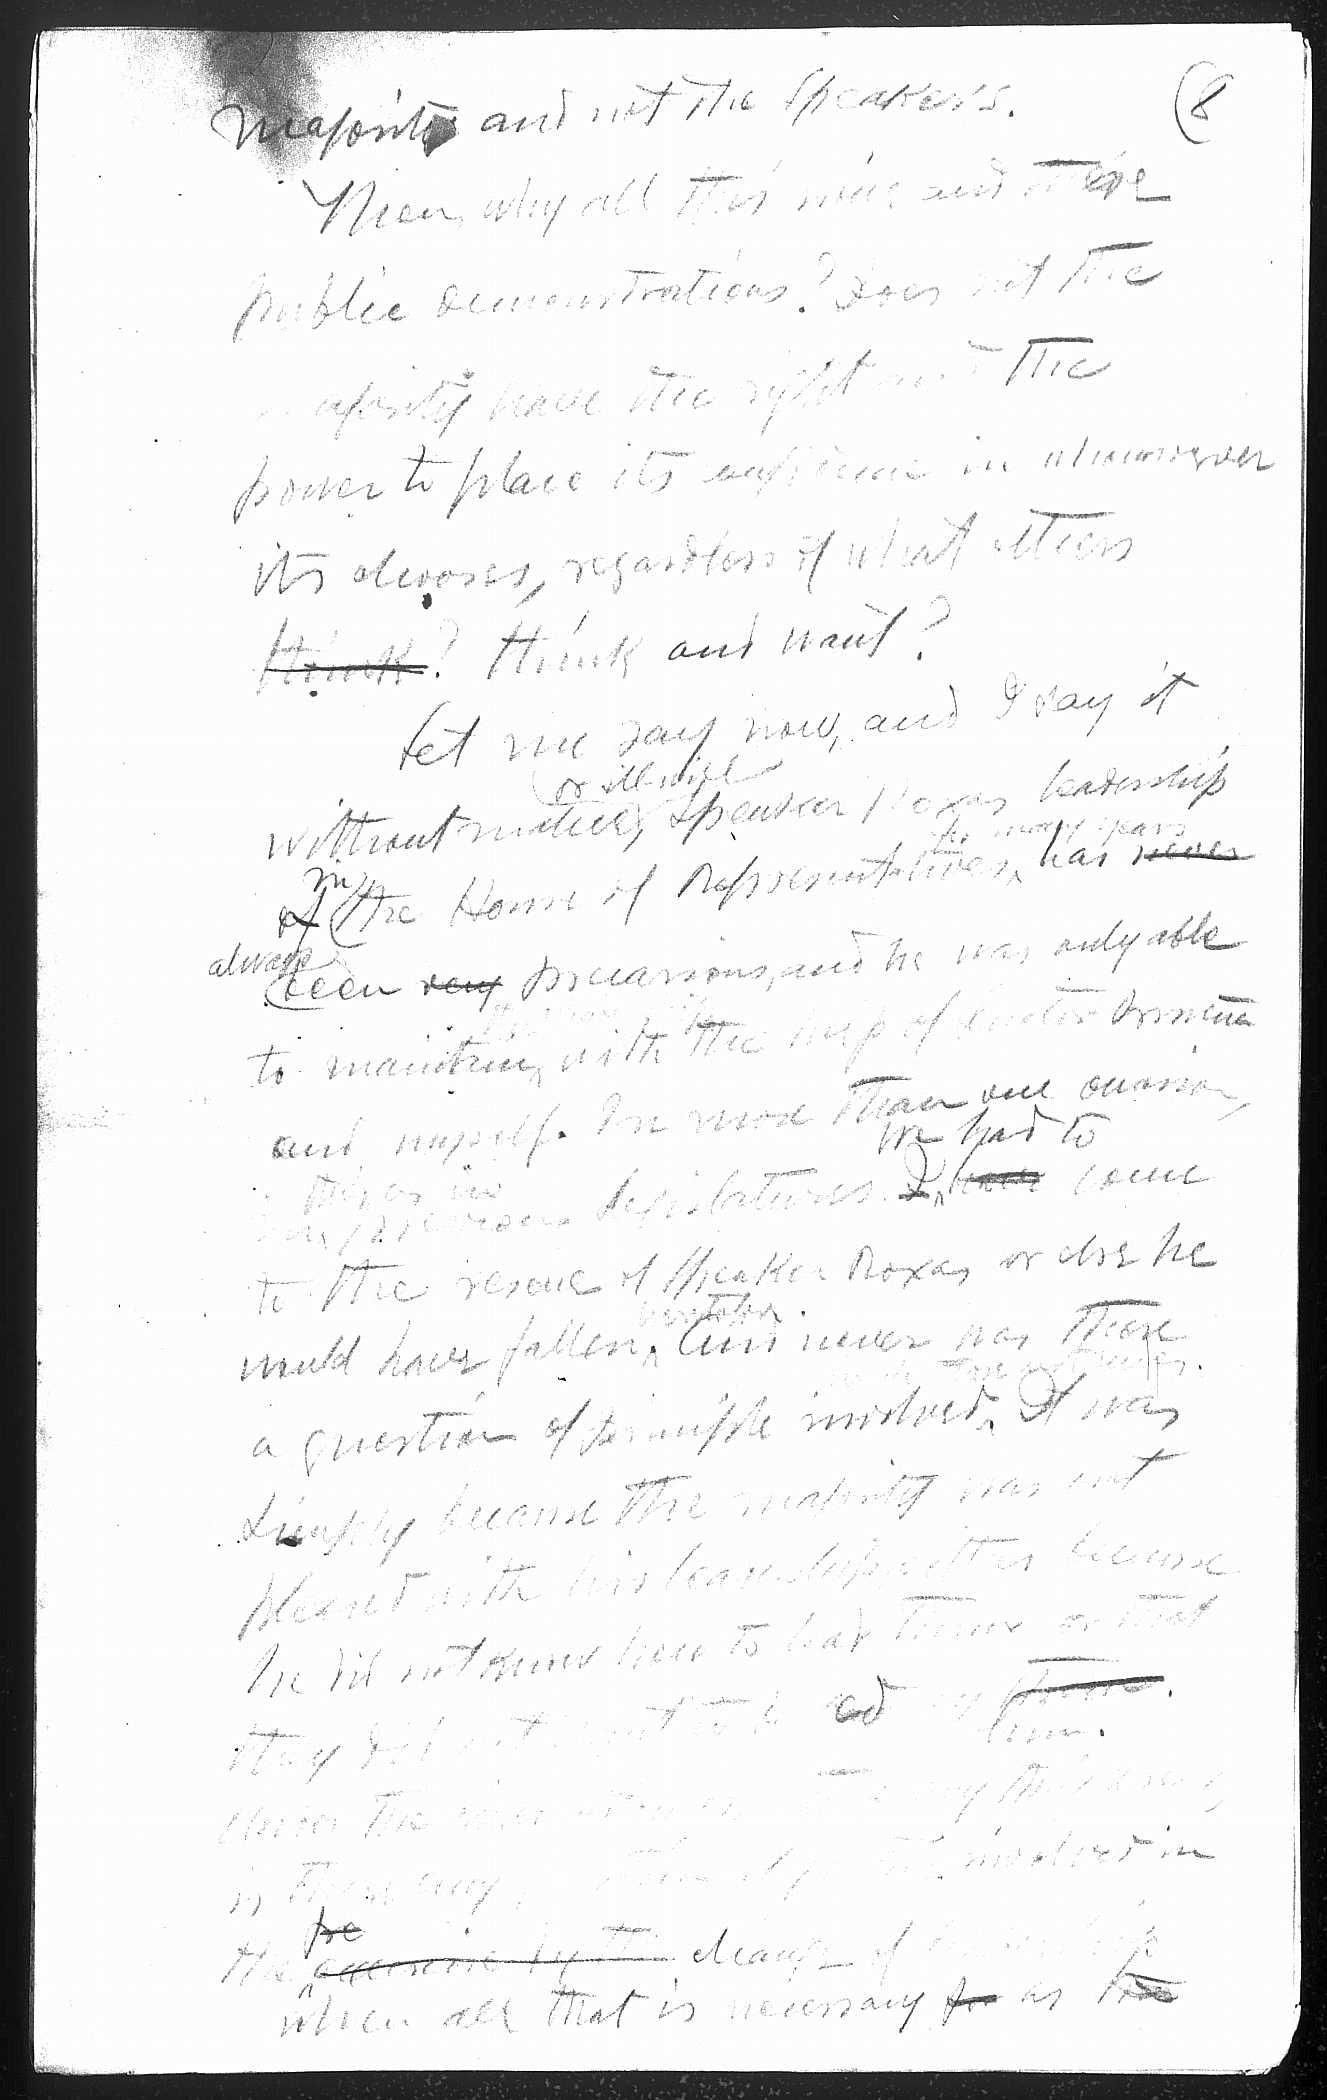 (8
majority and not the Speaker's.
Then, why all this noise and these
public demonstrations? Does not the
majority have the right and the
power to place its confidence in whomsoever
its chooses, regardless of what others
think? think and want?
Let me say now, and I say it
or illwill
without malice, Speaker Roxas leadership
for many years
in
of the House of Representatives, has never
always
been very precarious, and he was only able
to maintain with the help of Senator Osmeña
and myself. In more than one occasion,
we had to
legislatures I have come
to the rescue of Speaker Roxas or else he
would have fallen. And never was there
a question of principle involved. It was
simply because the majority was not
pleased with his leadership, either because
he did not know how to lead them or that
they did not want to be led by
him.
is there any involved in
the
change of
when all that is necessary for as the